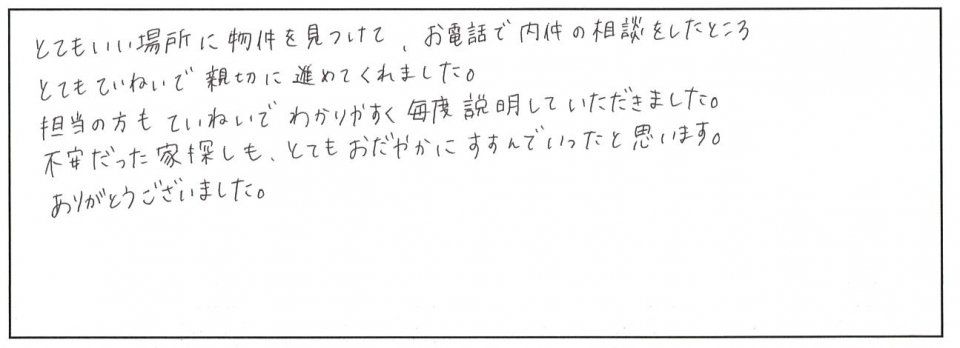 とてもいい場所に物件を見つけて、お電話で内件の相談をしたところ
とてもていねいで親切に進めてくれました。
担当の方もていねいでわかりやすく毎度説明していただきました。
不安だった家探しも、とてもおだやかにすすんでいったと思います。
ありがとうございました。